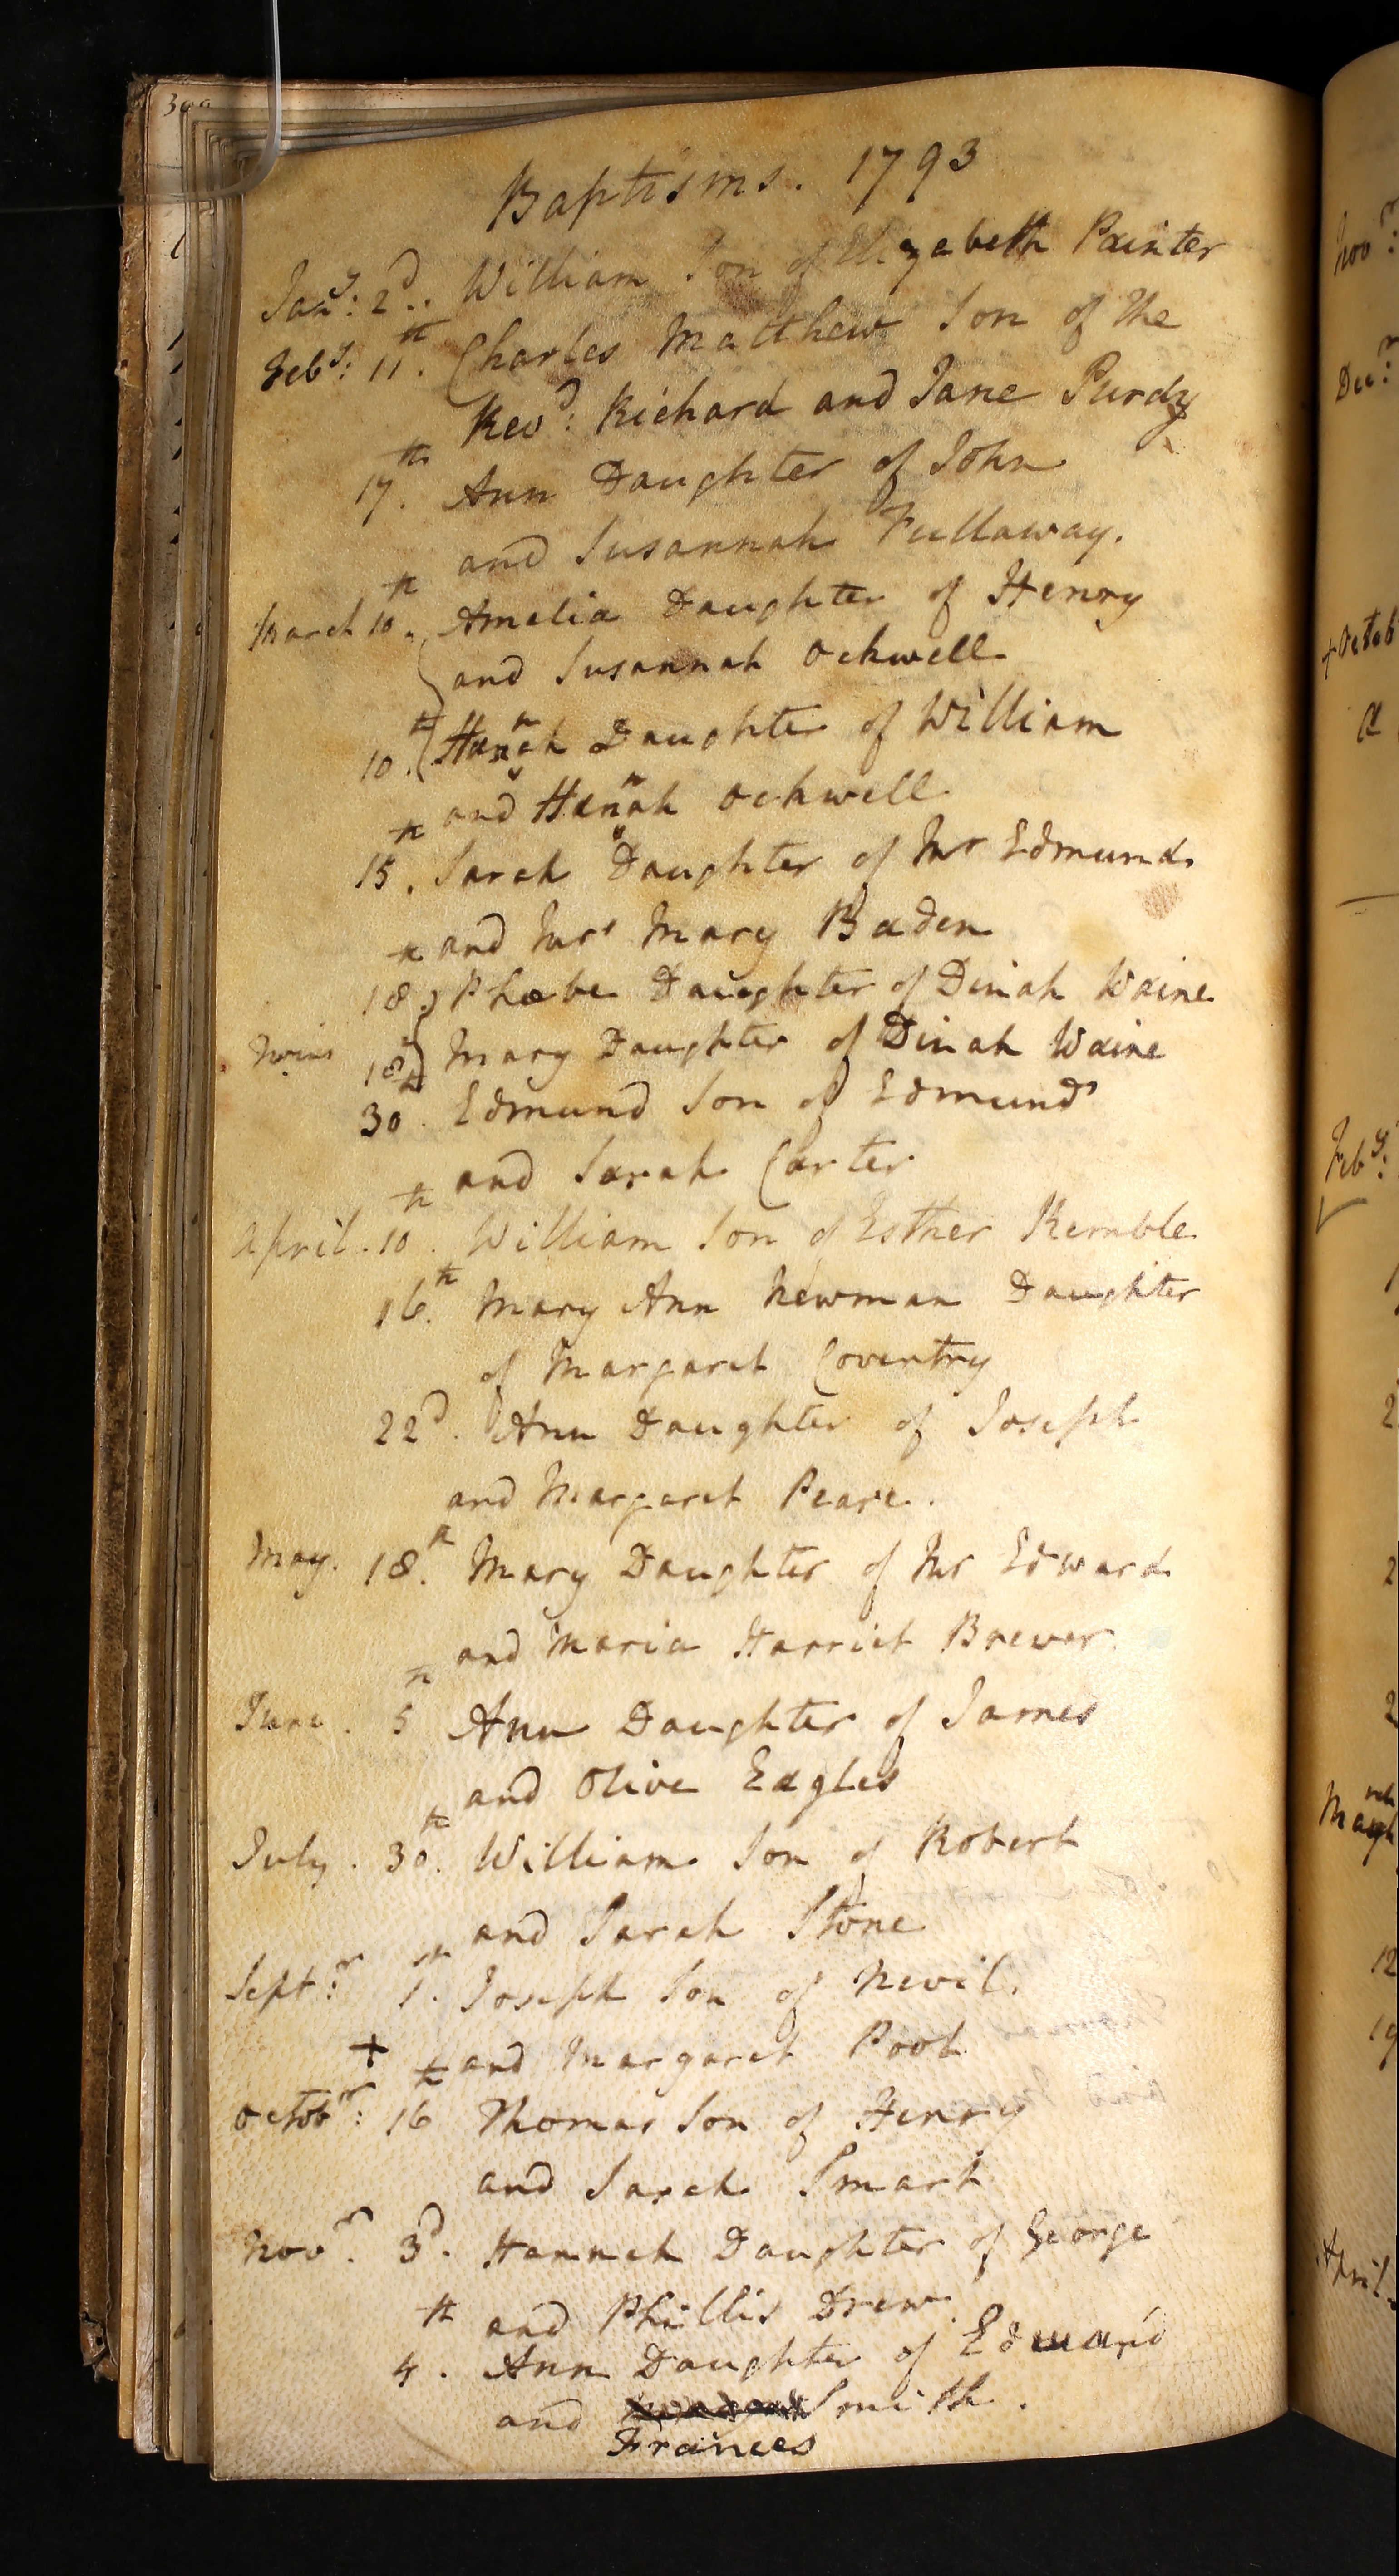 Baptisms. 1793
Jany: 2d. William Son of Elizabeth Painter
Feby: 11th. Charles Matthew Son of the
Revd: Richard and Jane Purdy
17th. Ann Daughter of John
and Susannah Fullaway.
March 10th. Amelia Daughter of Henry
and Susannah Ockwell
10th. Hannah Daughter of William
and Hannah Ockwell
15th. Sarah Daughter of Mr Edmund
and Mrs Mary Baden
18th. Phœbe Daughter of Dinah Waine
Twins 18th Mary Daughter of Dinah Waine
30th. Edmund Son of Edmund
and Sarah Carter
April. 10th. William Son of Esther Kemble
16th. Mary Ann Newman Daughter
of Margaret Coventry
22d. Ann Daughter of Joseph
and Margaret Pearce.
May. 18th. Mary Daughter of Mr Edward
and Maria Harriet Brewer
June. 5th Ann Daughter of James
and Olive Eagles
July. 30th. William Son of Robert
and Sarah Stone
Septr: 1st. Joseph Son of Nevil
+ and Margaret Pool
Octobr: 16th Thomas Son of Henry
and Sarah Smart
Novr. 3d. Hannah Daughter of George
and Phillis Drew.
4th. Ann Daughter of Edward
and Smith.
Frances
Novr:
Decr:
+ Octob
Feby:
April